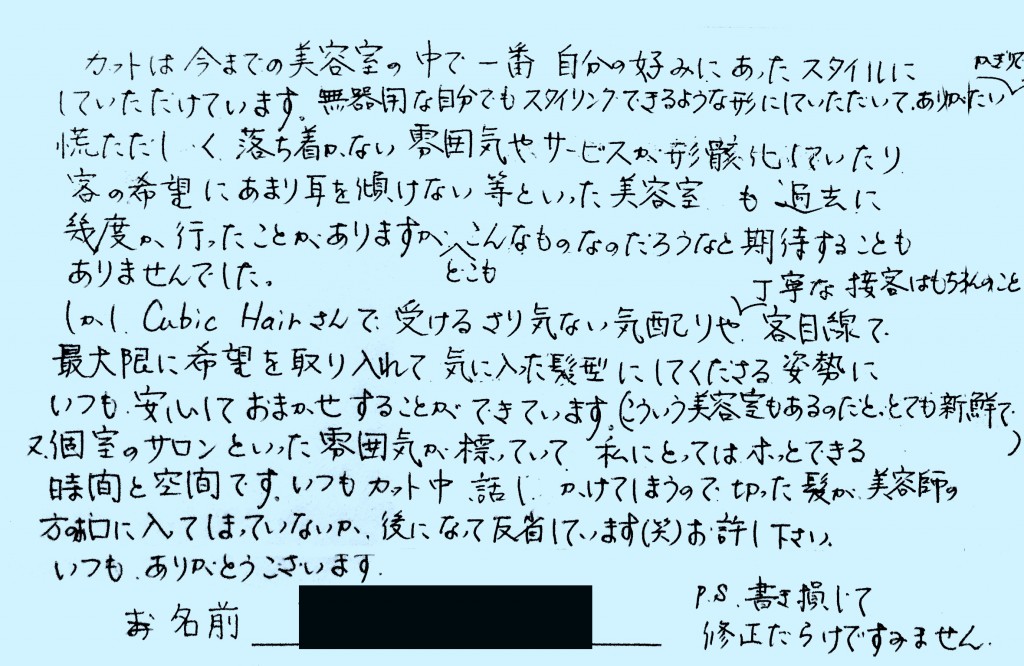 カットは今までの美容室の中で一番 自分の好みにあったスタイルに かぎりで
していただけています。無器用な自分でもスタイリングできるような形にしていただいて、ありがたい
慌ただしく落ち着かない雰囲気やサービスが形骸化していたり
客の希望にあまり耳を傾けない等といった美容室も過去に
幾度か行ったことがありますが、こんなものなのだろうなと期待することも
どこも
ありませんでした。
丁寧な接客はもちろんのこと
しかし Cubic Hairさんで受けるさり気ない気配りや客目線で
最大限に希望を取り入れて気に入った髪型にしてくださる姿勢に
いつも安心しておまかせすることができています。(こういう美容室もあるのだと、とても新鮮で)
又個室のサロンといった雰囲気が漂っていて私にとってはホッとできる
時間と空間です。いつもカット中話しかけてしまうので切った髪が美容師の
方のお口に入てしまっていないか、後になって反省しています(笑)お許し下さい。
いつもありがとうございます。
お名前
P.S.書き損じて
修正だらけですみません。